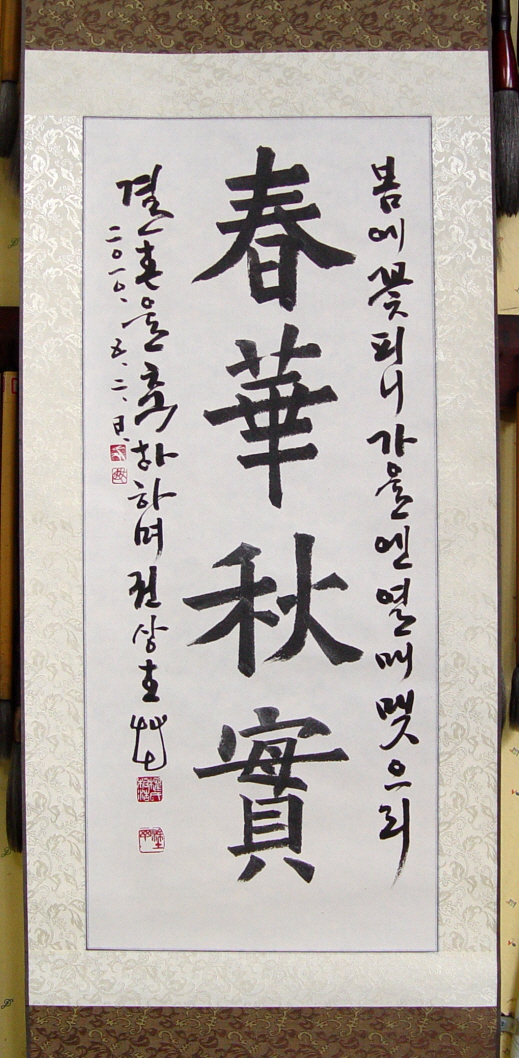 봄에 꽃피니 가을엔 열매 맺으리
春華秋實
결혼을 축하하며 권상호
二○一○.五.二.日.